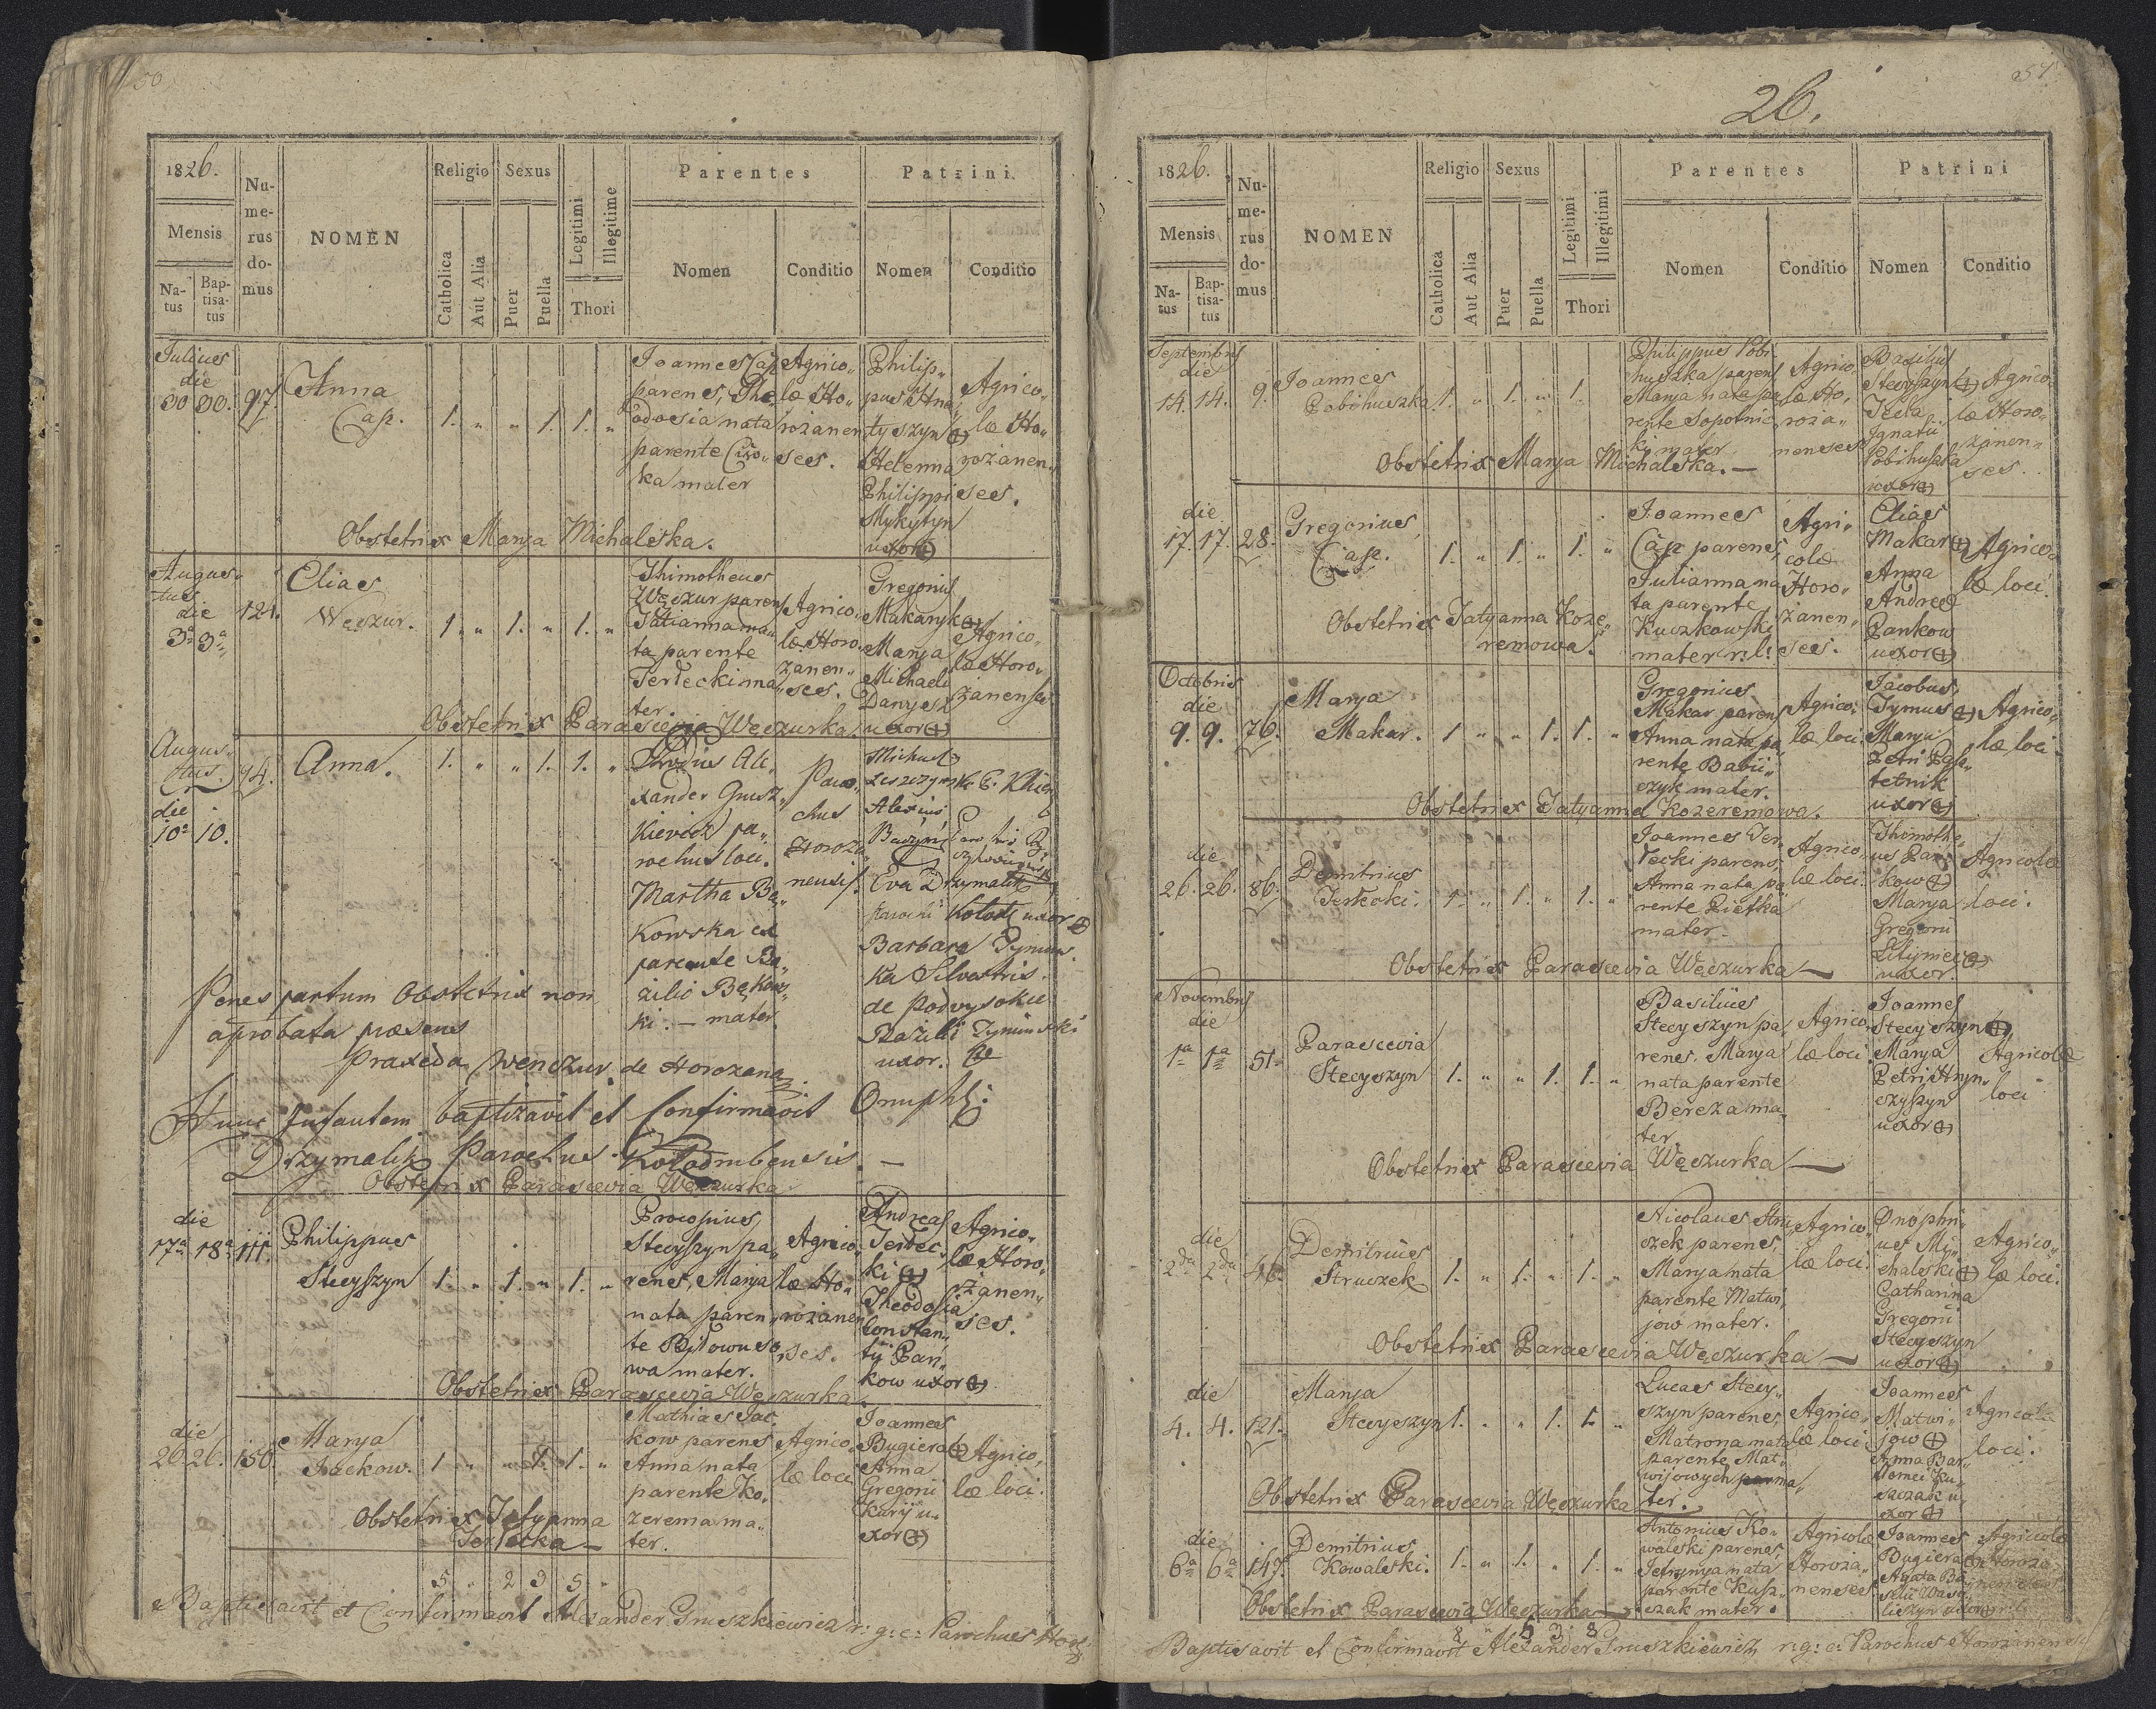 50
1826.
Numerus domus
NOMEN
Religio
Sexus
Legitimi
Illegitime
Parentes
Patrini
Mensis
Catholica
Aut Alia
Puer
Puella
Thori
Nomen
Conditio
Nomen
Conditio
Natus
Baptisatus
Julius
die
30 30. 97.
Anna
Cap.
1. „ „ 1. 1. „
Joannes Cap
parens, The
odosia nata
parente
ka mater
Agrico„
læ Ho„
rożanen
ses.
Philip„
pus Hna
tyszyn (+)
Helenna
Philippi
Mykytyn
uxor (+)
Agrico„
læ Ho„
rożanen„
ses.
Obstetrix Marya Michalska.
Augus„
tus
die
3a 3a 121.
Elias
Węczur.
1. „ 1. „ 1. „
Thimotheus
Węczur parens
Tatianna na„
ta parente
Terlecki ma„
ter.
Agrico„
læ Horo„
żanen„
ses.
Gregorius
Makaryk (+)
Marya
Michaeli
Danysz
uxor (+)
Agrico„
læ Horo„
żanenses
Obstetrix Parascevia Węczurka
Augus„
tus. 94.
die
10a 10.
Anna.
1. „ „ 1. 1. „
Ale„
xander Grusz„
kiewicz pa„
rochus loci.
Martha Bą„
kowska ex
parente Ba„
zilio Bękows„
ki. — mater.
Paro„
chus
Horoża„
nensis.
Michael
Leszczyński
Alexius
Eva Drzymalik
parochi Kołod uxor (+)
Barbara Tymins„
ka Silvestris
de Podwysokie
Bazilii Tyminski
uxor.
Penes partum Obstetrix non
aprobata præsens
Praxeda Wenczur de Horozana
Hunc Infantem baptizavit et Confirmavit Onuph:
Drzymalik Parochus Kołodrubensis. —
Obstetrix Parascevia Węczurka
die
17a 18a 111.
Philippus
Stecyszyn
1. „ 1. „ 1. „
Procopius
Stecyszyn pa„
rens, Marya
nata paren„
te
wa mater.
Agrico„
læ Ho„
rożanen
ses.
Andreas
Terlec„
ki (+)
Theodosia
Constan„
tij Pań„
kow uxor (+)
Agrico„
læ Horo„
żanen„
ses.
Obstetrix Parascevia Węczurka
die
26. 26. 150.
Marya
Jackow.
1 „ „ 1. 1. „
Mathias Jac„
kow parens
Anna nata
parente Ko„
zerema ma„
ter.
Agrico„
læ loci
Joannes
Bugiera (+)
Anna
Gregorii
Kurij u„
xor (+)
Agrico„
læ loci.
Obstetrix Tatyanna
Terlecka —
5 „ 2 3 5 „
Baptisavit et Confirmavit Alexander Gruszkiewicz r: g: c: Parochus Horoż
51
26.
1826.
Numerus domus
NOMEN
Religio
Sexus
Legitimi
Illegitimi
Parentes
Patrini
Mensis
Catholica
Aut Alia
Puer
Puella
Thori
Nomen
Conditio
Nomen
Conditio
Natus
Baptisatus
Septembris
die
14. 14. 9.
Joannes
Pobihuszka
1. „ 1. „ 1.
Philippus Pobi„
huszka parens
Marya nata pa„
rente Sopotnic„
ki mater
Agrico„
læ Ho„
roża„
nenses
Basilius
Stecyszyn (+)
Tecla
Ignatii
Pobihuszka
uxor (+)
Agrico„
læ Horo„
żanen„
ses.
Obstetrix Marya Michalska. —
die
17. 17. 28.
Gregorius
Cap.
1. „ 1. „ 1. „
Joannes
Cap parens,
Julianna na„
ta parente
Kuczkowski
mater r. l.
Agri„
colæ
Horo„
żanen„
ses.
Elias
Makar (+)
Anna
Andreæ
Pankow
uxor (+)
Agrico„
læ loci.
Obstetrix Tatyanna Koze„
remowa.
Octobris
die
9. 9. 76.
Marya
Makar.
1 „ „ 1. 1. „
Gregorius
Makar parens
Anna nata pa„
rente Babii„
czyk mater.
Agrico„
læ loci.
Jacobus
Tymus (+)
Marya
Petri
uxor (+)
Agrico„
læ loci
Obstetrix Tatyanna Kozeremowa.
die
26. 26. 86.
Demitrius
Terlecki.
1. „ 1. „ 1. „
Joannes Ter„
lecki parens,
Anna nata pa„
rente Pietka
mater.
Agrico„
læ loci.
Thimothe„
us Pań„
kow (+)
Marya
Gregorii
uxor
Agricolæ
loci.
Obstetrix Parascevia Węczurka —
Novembris
die
1a 1a 51
Parascevia
Stecyszyn
1. „ „ 1. 1. „
Basilius
Stecyszyn pa„
rens, Marya
nata parente
Bereza ma„
ter.
Agrico„
læ loci
Joannes
Stecyszyn (+)
Marya
Petri Hryn„
czyszyn
uxor (+)
Agricolæ
loci
Obstetrix Parascevia Węczurka —
die
2da 2da
Demitrius
Struczek
1. „ 1. „ 1. „
Nicolaus Stru„
czek parens,
Marya nata
parente Matwi„
jow mater.
Agrico„
læ loci.
Onophri„
us Mi„
chalski (+)
Catharina
Gregorii
Stecyszyn
uxor (+)
Agrico„
læ loci.
Obstetrix Parascevia Węczurka —
die
4. 4. 121.
Marya
Stecyszyn
1. „ „ 1. 1. „
Lucas Stecy„
szyn parens,
Matrona nata
parente Mat„
wijowych ma„
ter.
Agrico„
læ loci.
Joannes
Matwi„
jow (+)
Anna Bar„
uxor (+)
Agricolæ
loci.
Obstetrix Parascevia Węczurka
die
6a 6a 147.
Demitrius
Kowalski.
1. „ 1. „ 1. „
Antonius Ko„
walski parens,
nata
parente
mater.
Agricolæ
Horoża„
nenses
Joannes
Bugiera (+)
Agata Ba„
silii
Agricolæ
Obstetrix Parascevia Węczurka —
8 „ 5 3 8
Baptisavit et Confirmavit Alexander Gruszkiewicz r: g: c: Parochus Horożanensis